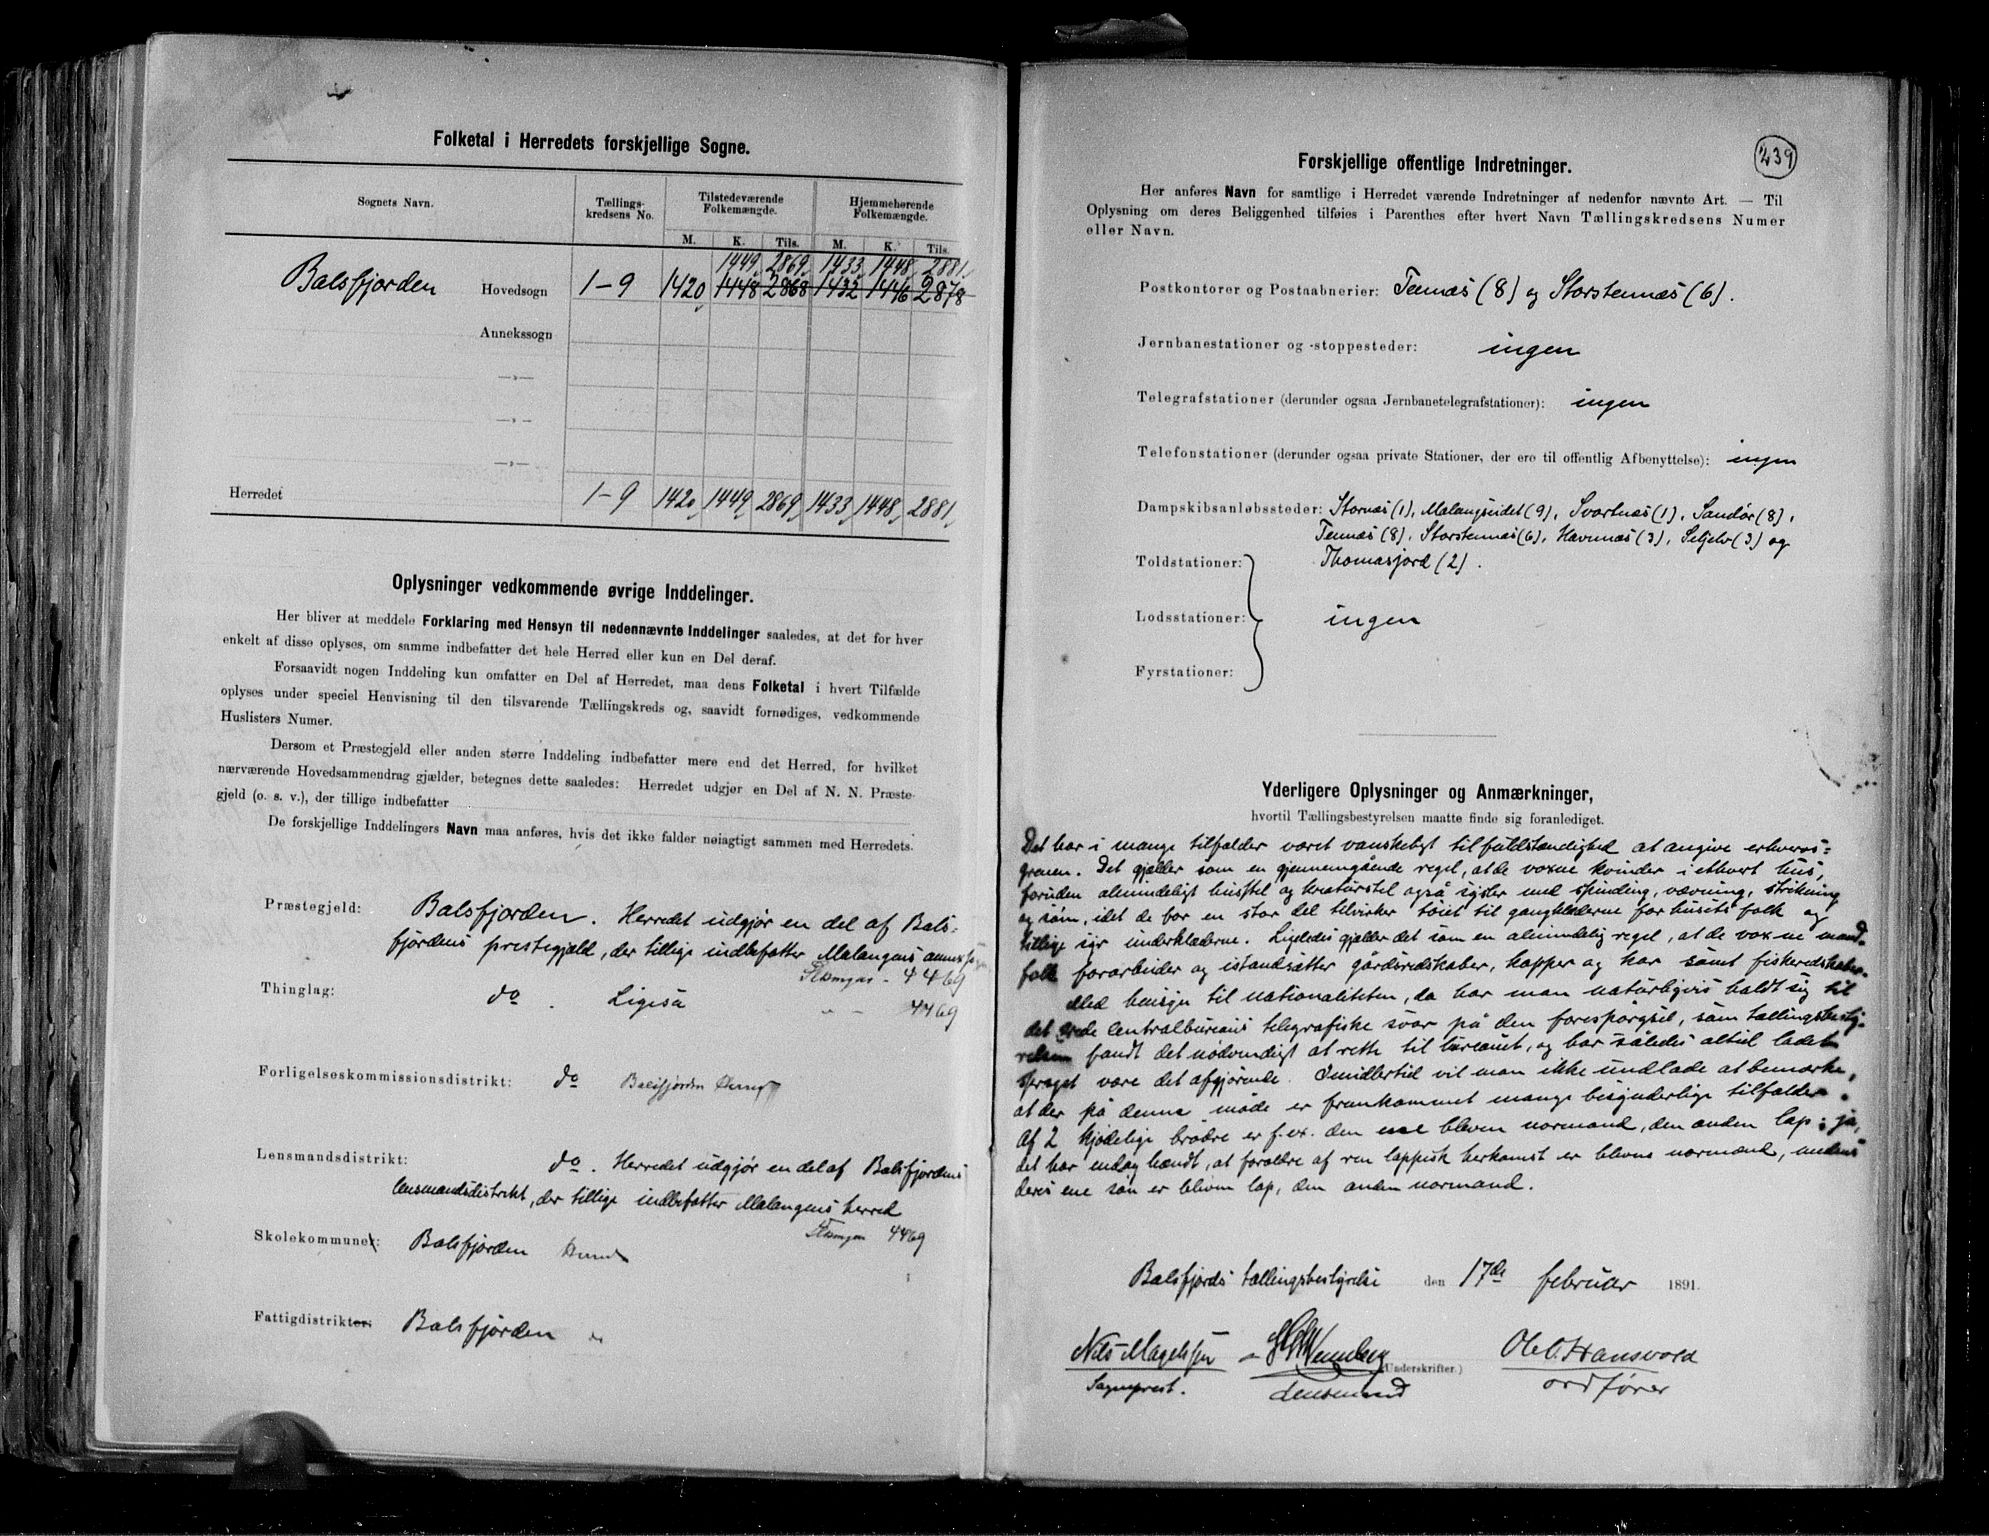 Folketal i Herredets forskjellige Sogne.
Sognets Navn. Tællings-kredsens No. Tilstedeværende Folkemængde. Hjemmehørende Folkemængde.
M. K. Tils. M. K. Tils.
1449 2869 1433 1448 2881
Balsfjorden Hovedsogn 1-9 1420 1448 2868 1432 1446 2878
Annekssogn
—„—
—„—
—„—
Herredet 1-9 1420 1449 2869 1433 1448 2881
Oplysninger vedkommende øvrige Inddelinger.
Her bliver at meddele Forklaring med Hensyn til nedennævnte Inddelinger saaledes, at det for hver
enkelt af disse oplyses, om samme indbefatter det hele Herred eller kun en Del deraf.
Forsaavidt nogen Inddeling kun omfatter en Del af Herredet, maa dens Folketal i hvert Tilfælde
oplyses under speciel Henvisning til den tilsvarende Tællingskreds og, saavidt fornødiges, vedkommende
Huslisters Numer.
Dersom et Præstegjeld eller anden større Inddeling indbefatter mere end det Herred, for hvilket
nærværende Hovedsammendrag gjælder, betegnes dette saaledes: Herredet udgjør en Del af N. N. Præste-
gjeld (o. s. v.), der tillige indbefatter
De forskjellige Inddelingers Navn maa anføres, hvis det ikke falder nøiagtigt sammen med Herredets.
Præstegjeld: Balsfjorden. Herredet udgjør en del af Bals-
fjordens prestegjæld, der tillige indbefatter Malangens
4469
Thinglag: do. Ligeså
4469
Forligelseskommissionsdistrikt: do Balsfjorden
Lensmandsdistrikt: do. Herredet udgjør en del af Balsfjordens
lensmandsdistrikt, der tillige indbefatter Malangens herred
4469
Skolekommuner: Balsfjorden
Fattigdistrikter: Balsfjorden
239
Forskjellige offentlige Indretninger.
Her anføres Navn for samtlige i Herredet værende Indretninger af nedenfor nævnte Art. — Til
Oplysning om deres Beliggenhed tilføies i Parenthes efter hvert Navn Tællingskredsens Numer
eller Navn.
Postkontorer og Postaabnerier: Tennæs (8) og Storstennæs (6).
Jernbanestationer og -stoppesteder: ingen
Telegrafstationer (derunder ogsaa Jernbanetelegrafstationer): ingen
Telefonstationer (derunder ogsaa private Stationer, der ere til offentlig Afbenyttelse): ingen
Dampskibsanløbssteder: Stornæs (1), Malangseidet (9), Svartnæs (1), Sandør (8),
Tennæs (8), Storstennæs (6), Havnnæs (3), Seljelv (3) og
Toldstationer: Thomasjord (2).
Lodsstationer: ingen
Fyrstationer:
Yderligere Oplysninger og Anmærkninger,
hvortil Tællingsbestyrelsen maatte finde sig foranlediget.
Det har i mange tilfælder været vanskeligt tilfuldstændighed at angive erhvervs-
grenen. Det gjælder som en gjennemgående regel, at de voxne kvinder i ethvert hus,
foruden almindeligt husstel og kreaturstel også sysler med spinding, vævning, strikning
og søm, idet de for en stor del tilvirker tøiet til gangklæderne for husets folk og
tillige syr underklæderne. Ligeledes gjælder det som en almindelig regel, at de voxne mand-
folk forarbeider og istandsætter gårdsredskaber, kopper og kar samt fiskeredskaber.
Med hensyn til nationaliteten, da har man naturligvis holdt sig til
det ærede Centralbureaus telegrafiske svar på den forespørgsel, som tællingsbesty-
relsen fandt det nødvendigt at rette til bureauet, og har således altid ladet
sproget være det afgjørende. Imidlertid vil man ikke undlade at bemærke,
at der på denne måde er fremkommet mange besynderlige tilfælder.
Af 2 kjødelige brødre er f. ex. den ene bleven normand, den anden lap; ja,
det har endog hændt, at forældre af ren lappisk herkomst er blevne normænd, medens
deres ene søn er bleven lap, den anden normand.
Balsfjords tællingsbestyrelse den 17de februar 1891.
Nils Magelssen Ole O. Hansvold
(Underskrifter.)
Sogneprest. Lensmand ordfører